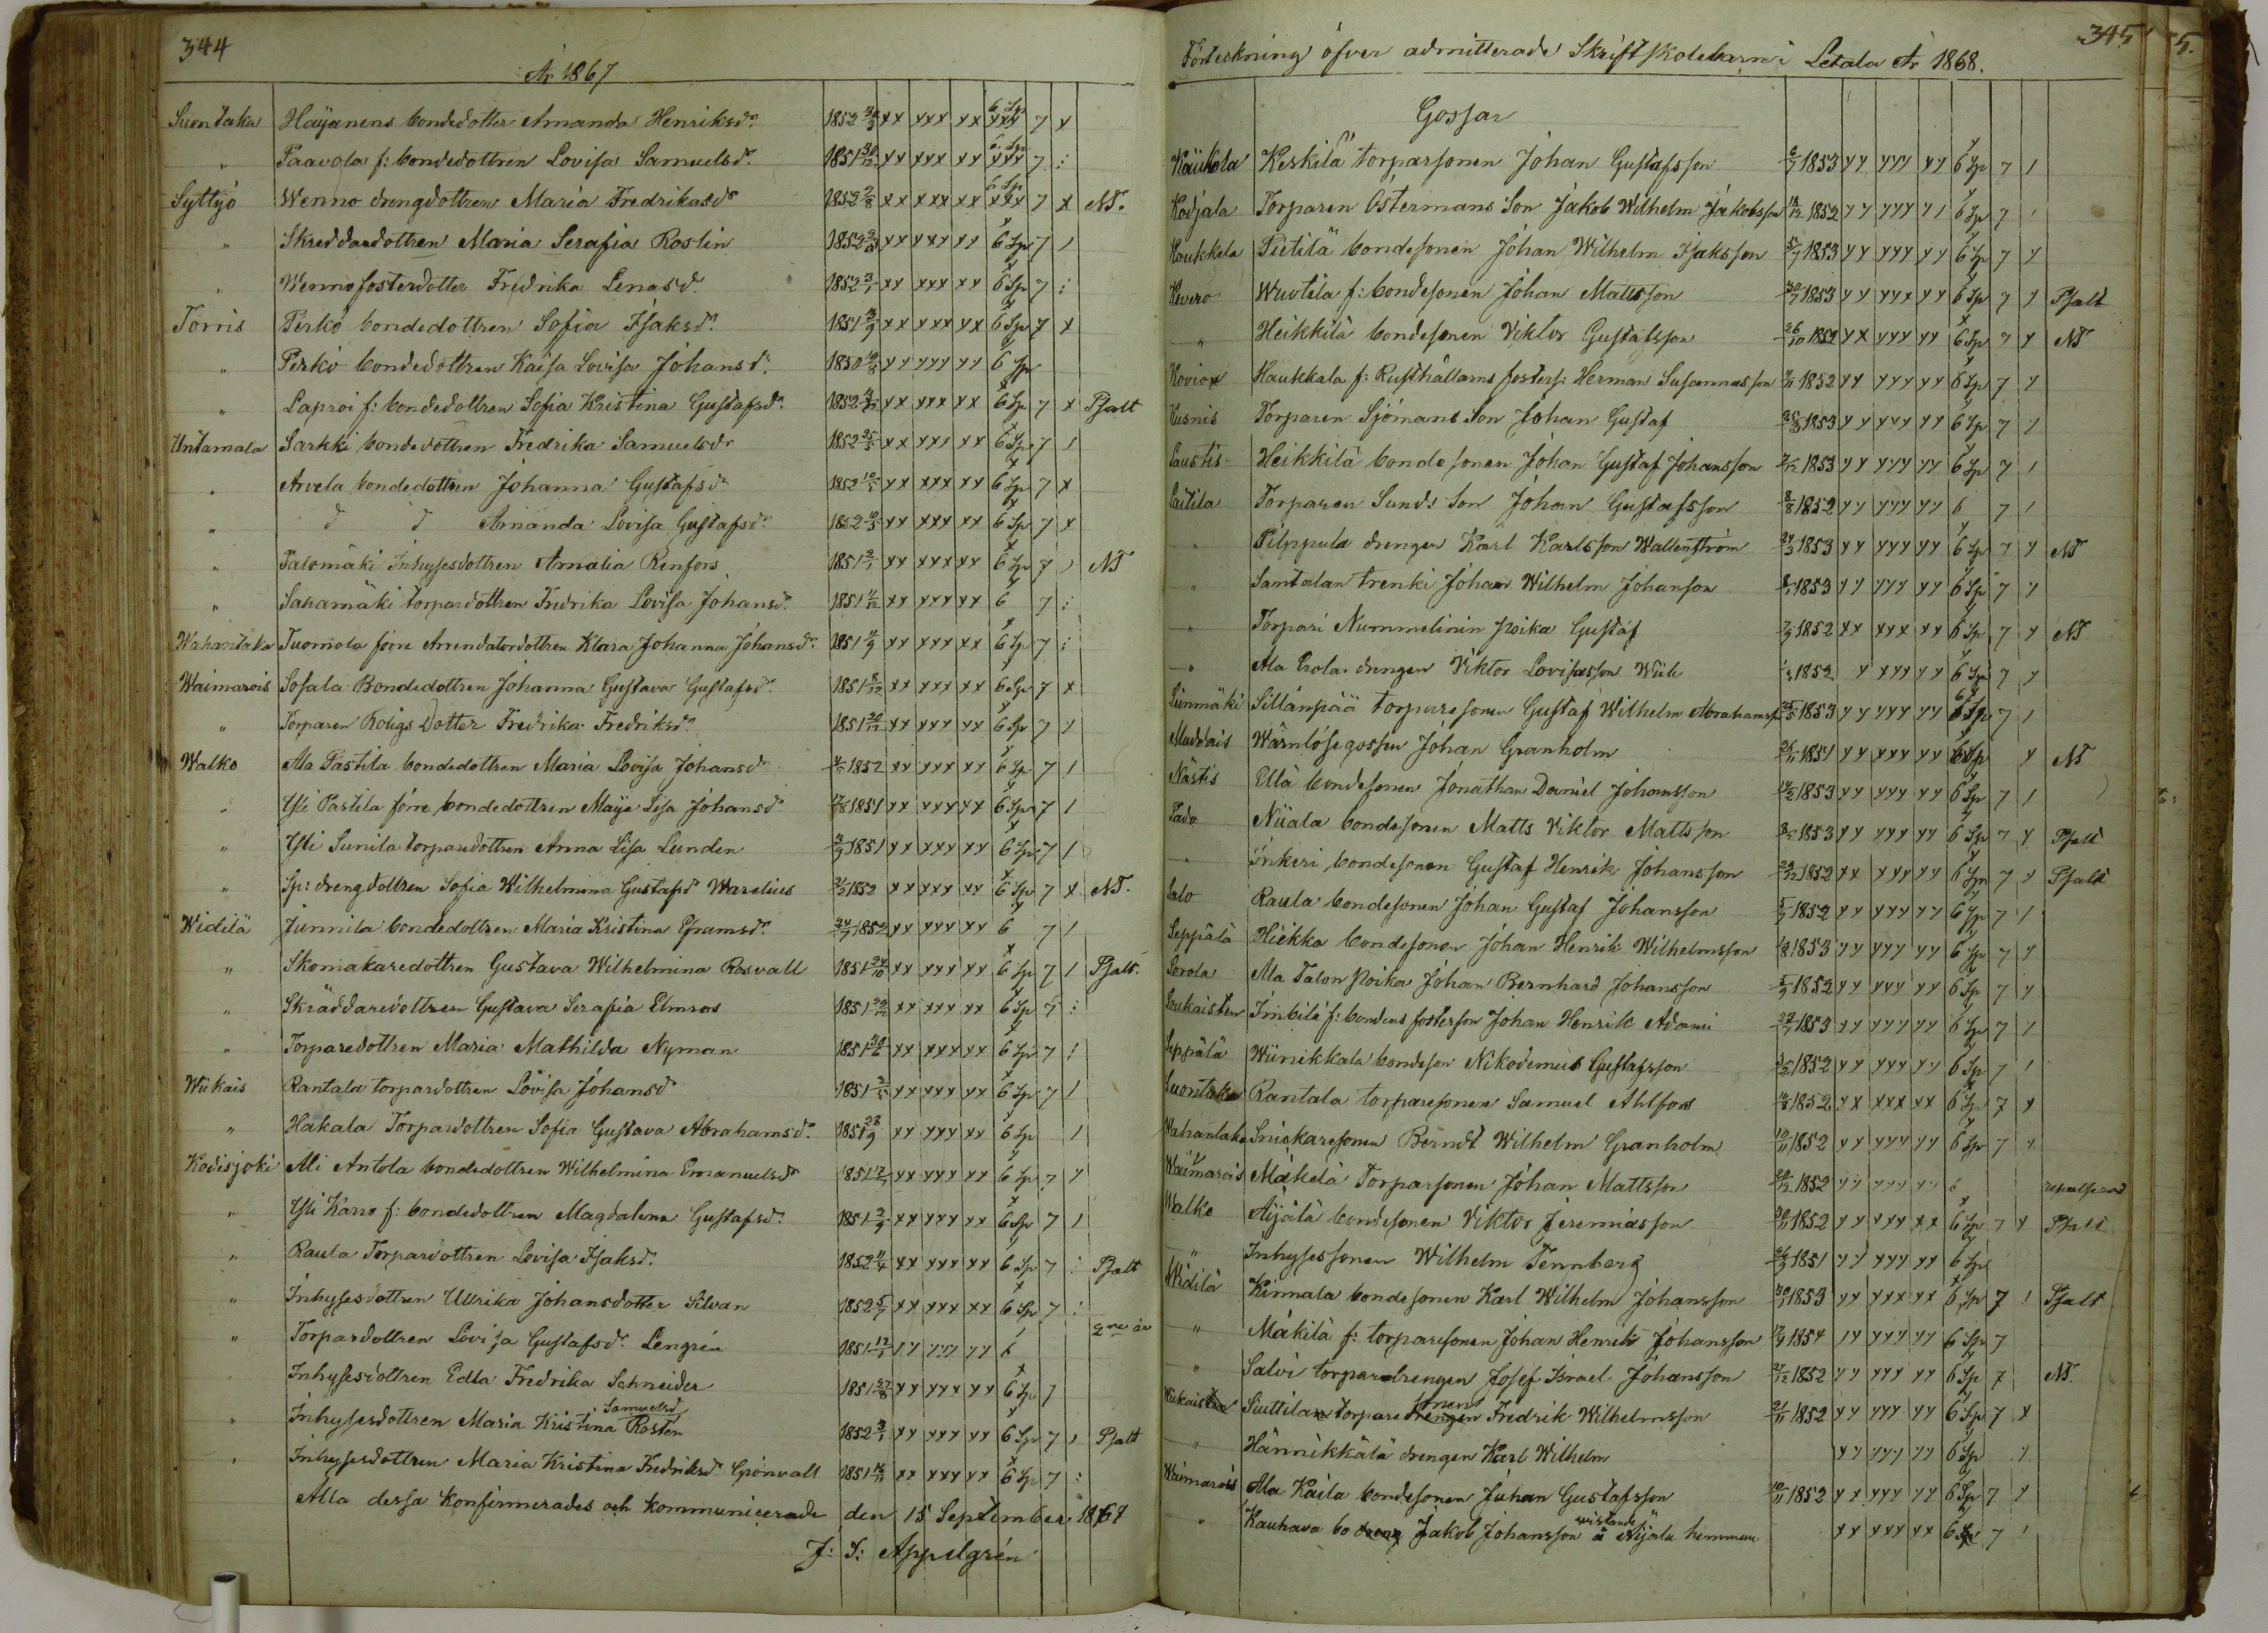 344
År 1867
Suontaka Häyänens bondedotter Amanda Henriksdr 1852 xx xxx xx 6 Sp xxx 7 x
" Paavola f: bondedottren Lovisa Samuelsdr 1851 xx xxx xx 6 Sp xxx 7 :
Syttyö Wenno drengdottren Maria Fredrikasdr 1852 2/8 xx xxx xx 6 Sp xxx 7 x NT.
" Skreddaredottren Maria Serafia Roslin 1852 xx xxx xx 6 Sp 7 /
" Wenno fosterdotter Fredrika Lenasdr 1852 3/1 xx xxx xx 6 Sp 7 :
Torris Pirkö bondedottren Sofia Isaksdr 1851 xx xxx xx 6 Sp 7 x
" Pirkö bondedottren Kaisa Lovisa Johansdr 1850 xx xxx xx 6 Sp
" Laproi f: bondedottren Sofia Kristina Gustafsdr 1852 xx xxx xx 6 Sp 7 x Psalt
Untamala Sarkki bondedottren Fredrika Samuelsdr 1852 25/5 xx xxx xx 6 Sp 7 /
" Arvela bondedottren Johanna Gustafsdr 1852 xx xxx xx 6 Sp 7 x
" d d Amanda Lovisa Gustafsdr 1852 xx xxx xx 6 Sp 7 x
" Talomäki Inhysesdottren Amalia Renfors 1851 2/1 xx xxx xx 6 Sp 7 ) NT
" Saharmäki torpardottren Fredrika Lovisa Johansdr 1851 xx xxx xx 6 7 :
Wahantaka Tuomola förre Arrendatordottren Klara Johanna Johansdr 1851 xx xxx xx 6 Sp 7 :
Waimarois Sofala Bondedottren Johanna Gustava Gustafsdr 1851 8/12 xx xxx xx 6 Sp 7 x
" Torparen Roligs Dotter Fredrika Fredriksdr 1851 20/12 xx xxx xx 6 Sp 7 /
Walko Ala Pastila bondedottren Maria Lovisa Johansdr 1852 xx xxx xx 6 Sp 7 /
" Yli Pastila förre bondedottren Maija Lisa Johansdr 1851 xx xxx xx 6 Sp 7 /
" Yli Sunila torparedottren Anna Lisa Lunden 1851 xx xxx xx 6 Sp 7 /
" Sp: drengdottren Sofia Wilhelmina Gustafsd Warelius 1852 xx xxx xx 6 Sp 7 x NT.
Widilä Junnila bondedottren Maria Kristina Eframsdr 1852 xx xxx xx 6 7 /
" Skomakaredottren Gustava Wilhelmina Rosvall 1851 24/10 xx xxx xx 6 Sp 7 / Psalt.
" Skräddaredottren Gustava Serafia Elmros 1851 xx xxx xx 6 Sp 7 :
" Torparedottren Maria Mathilda Nyman 1851 xx xxx xx 6 Sp 7 :
Wiikais Rantala torpardottren Lovisa Johansdr 1851 xx xxx xx 6 Sp 7 /
" Hakala Torpardottren Sofia Gustava Abrahamsdr 1851 28/9 xx xxx xx 6 Sp /
Kodisjoki Ali Antola bondedottren Wilhelmina Emanuelsdr 1851 xx xxx xx 6 Sp 7 /
" Yli Karro f: bondedottren Magdalena Gustafsdr 1851 2/9 xx xxx xx 6 Sp 7 /
" Raula Torpardottren Lovisa Isaksdr 1852 xx xxx xx 6 Sp 7 : Psalt
" Inhysesdottren Ullrika Johansdotter Silvan 1852 5/7 xx xxx xx 6 Sp 7 :
" Torpardottren Lovisa Gustafsdr Lengrén 1851 xx xxx xx 6 2ne år
" Inhysesdottren Edla Fredrika Schneider 1851 27/8 xx xxx xx 6 Sp 7
" Inhysesdottren Maria Kristina Samuelsd Rosten 1852 xx xxx xx 6 Sp 7 / Psalt
" Inhysesdottren Maria Kristina Fredriksdr Grönvall 1851 xx xxx xx 6 Sp 7 :
Alla dessa konfirmerades och kommunicerade den 15 September 1867
J: S: Appelgrén
345
Förteckning öfver admitterade Skriftskolebarn i Letala År 1868.
Gossar
Käukola Keskilä torparsonen Johan Gustafsson 6/7 1853 xx xxx xx 6 Sp 7 /
Kodjala Torparen Östermans Son Jakob Wilhelm Jakobsson 1852 xx xxx x/ 6 Sp 7 /
Koukkela Pietilä bondesonen Johan Wilhelm Isaksson 1853 xx xxx xx 6 Sp 7 x
Kovero Wuotila f: bondesonen Johan Mattsson 1853 xx xxx xx 6 Sp 7 x Psalt
" Heikkilä bondesonen Viktor Gustafsson 26/10 1852 xx xxx xx 6 Sp 7 x NT
Koviox Haukkala f: Rusthållarns fosters: Herman Susannasson 1852 xx xxx xx 6 Sp 7 x
Kusnis Torparen Sjömans Son Johan Gustaf 1853 xx xxx xx 6 Sp 7 /
Laustis Heikkilä bondesonen Johan Gustaf Johansson 1853 xx xxx xx 6 Sp 7 /
Laitila Torparen Sunds Son Johan Gustafsson 8/8 1852 xx xxx xx 6 7 /
" Pilppula drengen Karl Karlsson Wallenström 1853 xx xxx xx 6 Sp 7 x NT
" Santalan trenki Johan Wilhelm Johansson 1853 xx xxx xx 6 Sp 7 x
" Torpari Nummelinin poika Gustaf 1852 xx xxx xx 6 Sp 7 x NT
" Ala Erola drengen Viktor Lovisasson Wiik 1852 x xxx xx 6 Sp 7 x
Sillanpää torparesonen Gustaf Wilhelm Abrahamss 1853 xx xxx xx 6 Sp 7 /
Muddais Wärnlöse gossen Johan Granholm 1851 xx xxx xx 6 Sp x NT
Nästis Ulä bondesonen Jonathan Daniel Johansson 1853 xx xxx xx 6 Sp 7 /
Pado Niiala bondesonen Matts Viktor Mattsson 1853 xx xxx xx 6 Sp 7 x Psalt
" Inkeri bondesonen Gustaf Henrik Johansson 1852 xx xxx xx 6 Sp 7 x Psalt
Salo Raula bondesonen Johan Gustaf Johansson 1852 xx xxx xx 6 Sp 7 /
Seppälä Hiekka bondesonen Johan Henrik Wilhelmsson 1853 xx xxx xx 6 Sp 7 x
Sorola Ala Talon poika Johan Bernhard Johansson 1852 xx xxx xx 6 Sp 7 x
Soukaisten Imbilä f: bondens fosterson Johan Henrik Adami 1853 xx xxx xx 6 Sp 7 /
Seppälä Wiinikkala bondeson Nikodemus Gustafsson 1852 xx xxx xx 6 Sp 7 /
Suontaka Rantala torparesonen Samuel Ahlfors 1852 xx xxx xx 6 Sp 7 x
Wahantaka Snickaresonen Berndt Wilhelm Granholm 1852 xx xxx xx 6 Sp 7 x
Waimarois Mäkelä Torparsonen Johan Mattsson 1852 xx xxx xx 6
Walko Äijälä bondesonen Viktor Jeremiasson 1852 xx xxx xx 6 Sp 7 x Psalt
" Inhysessonen Wilhelm Tennberg 1851 xx xxx xx 6 Sp
Widilä Kinnala bondesonen Karl Wilhelm Johansson 1853 xx xxx xx 6 Sp 7 / Psalt
" Mäkilä f: torparesonen Johan Henrik Johansson 1854 xx xxx xx 6 Sp 7
" Salvi torpardrengen Josef Israel Johansson 27/12 1852 xx xxx xx 6 Sp 7 NT.
Siuttila torpare drengen sonen Fredrik Wilhelmsson 21/11 1852 xx xxx xx 6 Sp 7 x
" Hännikkälä drengen Karl Wilhelm xx xxx xx 6 Sp /
Waimarois Ala Kaila bondesonen Juhan Gustafsson 10/11 1852 xx xxx xx 6 Sp 7 x
" Kauhava bo dreng Jakob Johansson wistande å Äijälä hemman xx xxx xx 6 Sp 7 /